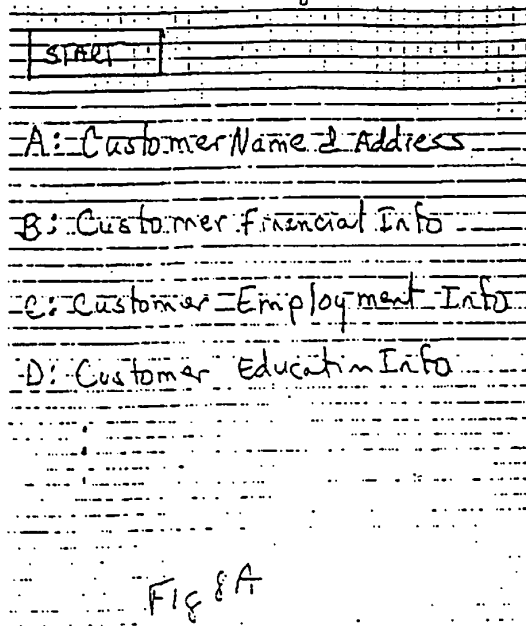 START
A: Customer Name & Address
B: Customer Financial Info
C: Customer Employment Info
D: Customer Education Info
Fig 8A